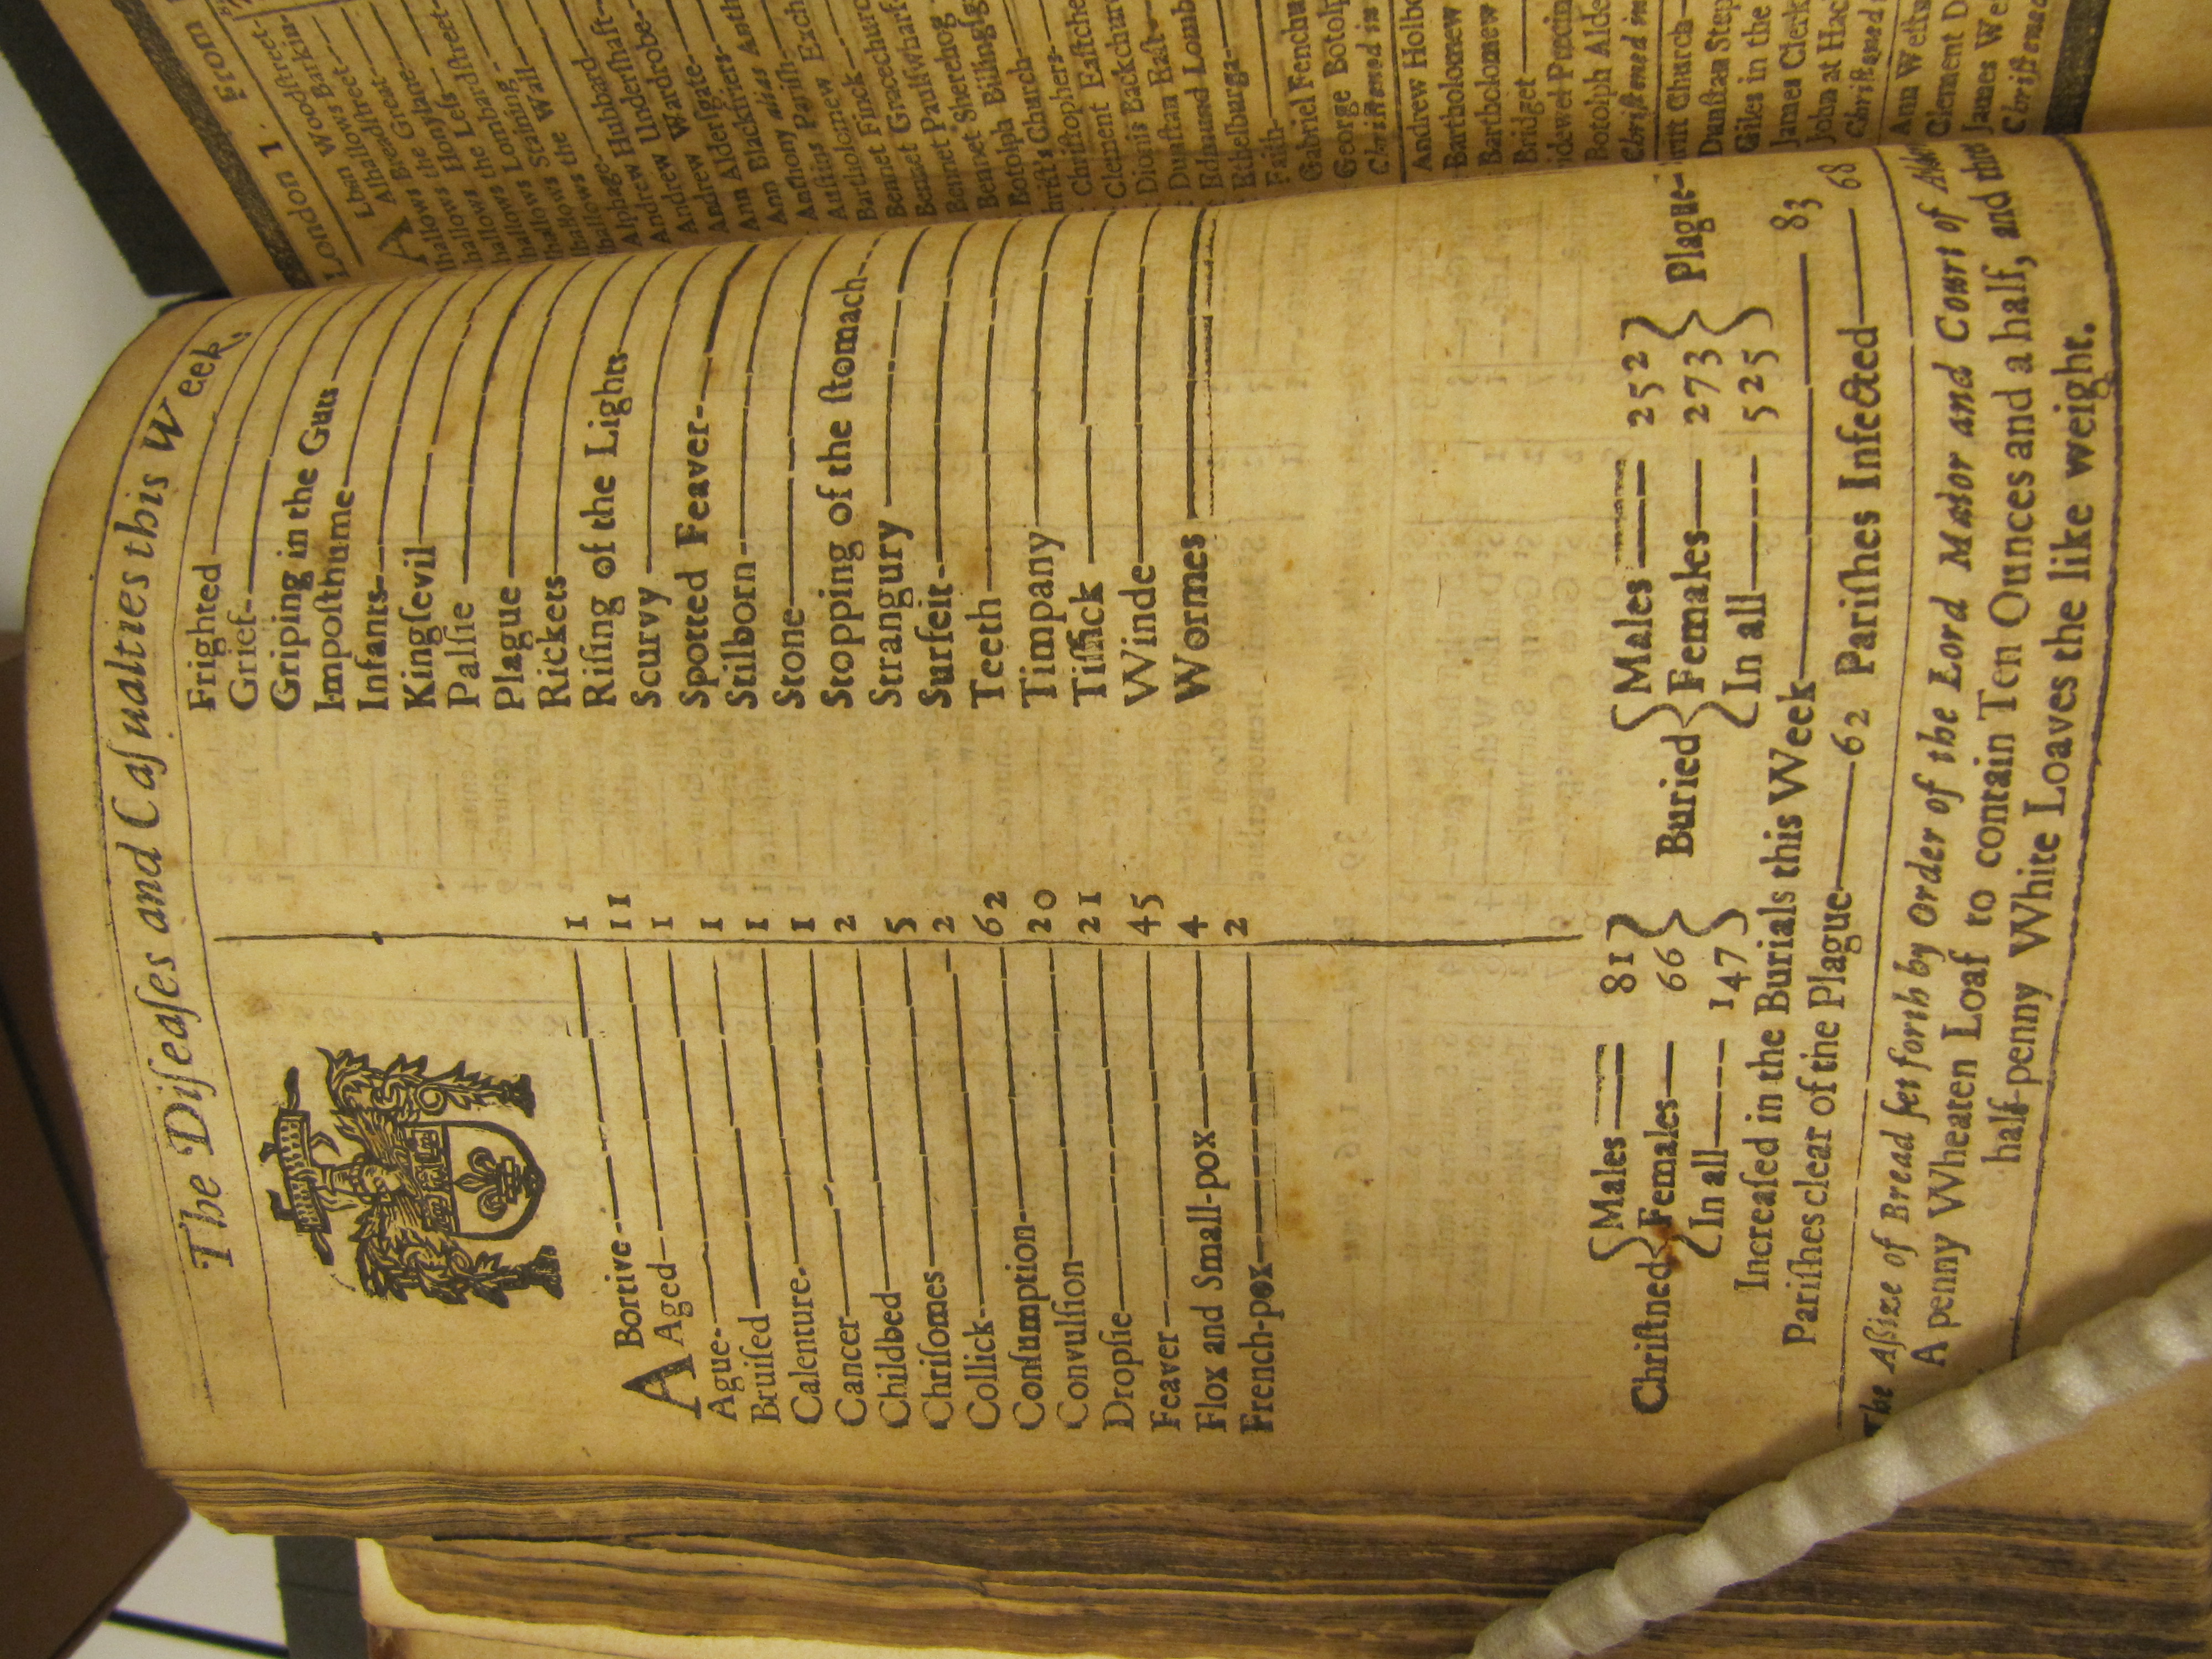 The Diſeaſes and Caſualties this Week,
ABortive 1
Aged 11
Ague 1
Bruiſed 1
Calenture 1
Cancer 1
Childbed 2
Chriſomes 5
Collick 2
Conſumption 62
Convulſion 20
Dropſie 21
Feaver 45
Flox and Small-pox 4
French-pox 2
Frighted
Grief
Griping in the Guts
Impoſthume
Infants
Kingſevil
Palſie
Plague
Rickets
Riſing of the Lights
Scurvy
Spotted Feaver
Stilborn
Stone
Stopping of the ſtomach
Strangury
Surfeit
Teeth
Timpany
Tiſſick
Winde
Wormes
Chriſtned { Males 81 Females 66 In all 147 }
Buried { Males 252 Females 273 In all 525 } Plague
Increaſed in the Burials this Week 83
Pariſhes clear of the Plague 62 Pariſhes Infected 68
The Aſſize of Bread ſet forth by Order of the Lord Maior and Court of
A penny Wheaten Loaf to contain Ten Ounces and a half, and three
half-penny White Loaves the like weight.
London 1. From
Lban Woodſtreet
A Alhallows Barkin
Alhallows Breadſtreet
hallows Great
hallows Honylane
hallows Leſs
hallows Lombardſtreet
hallows Staining
hallows the Wall
Alphage
Andrew Hubbard
Andrew Underſhaft
Andrew Wardrobe
Ann Alderſgate
Ann Blackfriers
Anthony alias Anth
Auſtins Pariſh
Bartholomew Exch
Bennet Finck
Bennet Gracechurc
Bennet Paulſwharf
Bennet Sherehog
Botolph Billingſg
Chriſts Church
Chriſtophers
Clement Eaſtche
Dionis Backchur
Dunſtan Eaſt
Edmund Lomb
Ethelburga
Faith
Gabriel Fenchu
George Botolp
Chriſtned in
Andrew Holbo
Bartholomew
Bartholomew
Bridget
Botolph Alde
Chriſtned in
Church
Dunſtan
Giles in the
James Clerk
John at Hac
Chriſtned
Clement D
James We
Chriſtned